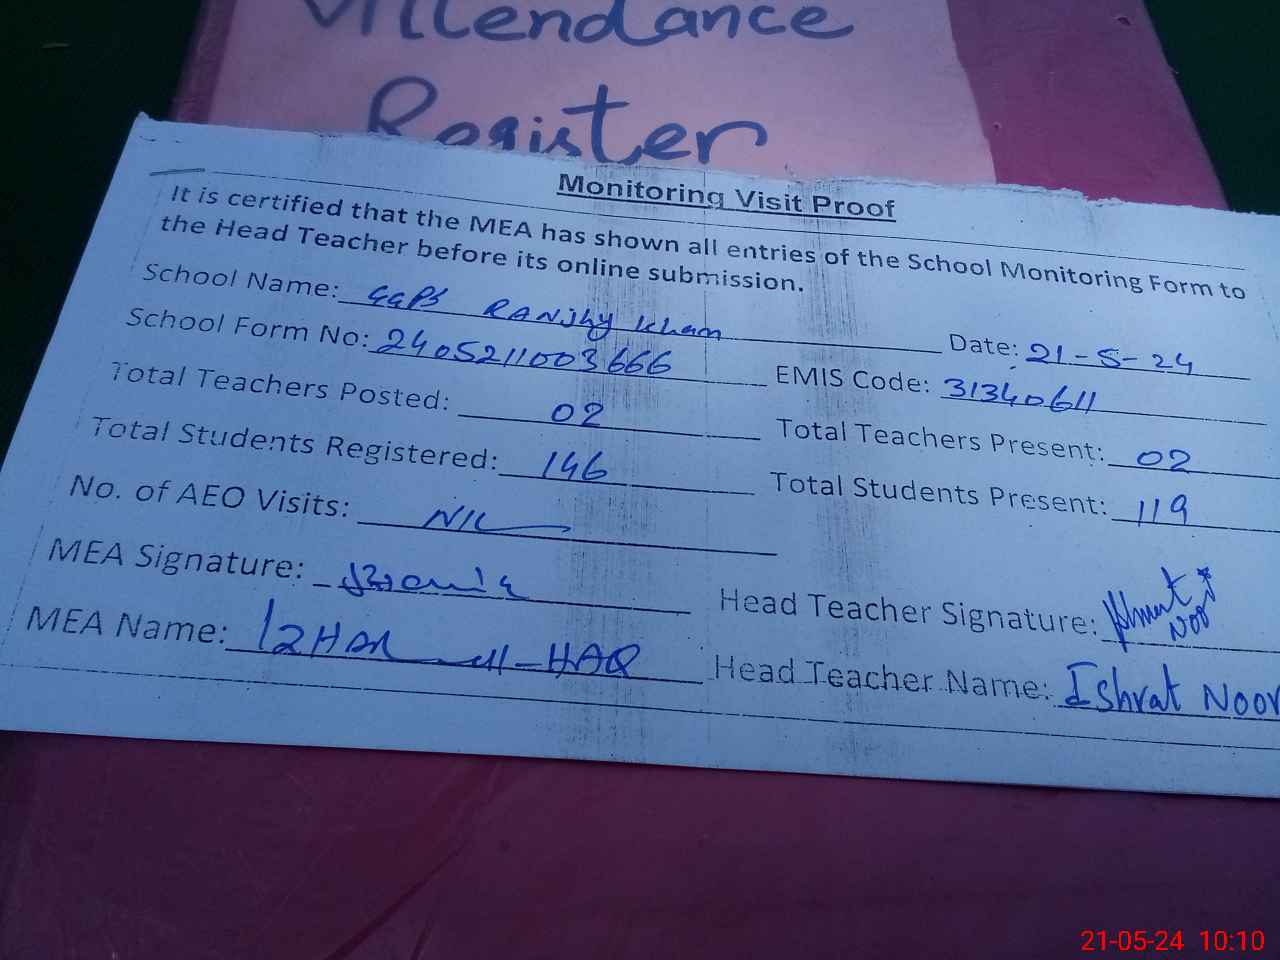 Attendance
Register
Monitoring Visit Proof
It is certified that the MEA has shown all entries of the School Monitoring Form to
the Head Teacher before its online submission.
School Name: GGPS RANJhy Khan Date: 21-5-24
School Form No: 2405211003666 EMIS Code: 31340611
Total Teachers Posted: 02 Total Teachers Present: 02
Total Students Registered: 146 Total Students Present: 119
No. of AEO Visits: NIL
MEA Signature: Head Teacher Signature: Ishrat Noor
MEA Name: IZHAR ul-HAQ Head Teacher Name: Ishrat Noor
21-05-24 10:10